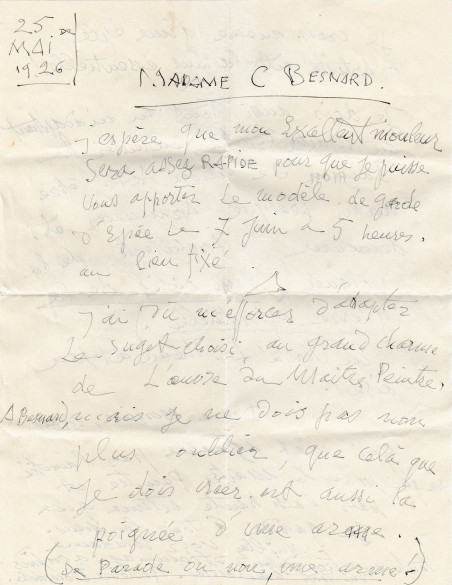 25 de
MAI
1926
MADAME C BESNARD.
j'espère que mon Excellent mouleur
sera assez RAPIDE pour que je puisse
vous apporter le modèle de garde
d'Epée le 7 Juin à 5 heures.
au lieu fixé.
j'ai dû m'efforcer d'adapter
le sujet choisi, au grand charme
de l'œuvre du Maître Peintre.
A Besnard, mais je ne dois pas non
plus oublier, que celà que
je dois créer est aussi la
poignée d'une arme.
(de Parade ou non, une arme!)